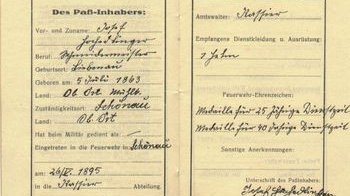 Des Paß-Inhabers:
Vor- und Zuname: Josef
Hochedlinger
Beruf: Schneidermeister
Geburtsort: Liebenau
Geboren am: 5 Juli 1863
Land: Ob. Öst. Mühlk.
Zuständigkeitsort: Schönau
Land: Ob. Öst
Hat beim Militär gedient als:
Eingetreten in die Feuerwehr in Schönau
am 26/IV. 1895
in die Kassier Abteilung.
Amtswalter: Kassier
Empfangene Dienstkleidung u. Ausrüstung:
Feuerwehr-Ehrenzeichen:
Medaille für 25 Jährige Dienstzeit
Medaille für 40 Jährige Dienstzeit
Sonstige Anerkennungen:
Unterschrift des Paßinhabers:
Josef Hochedlinger